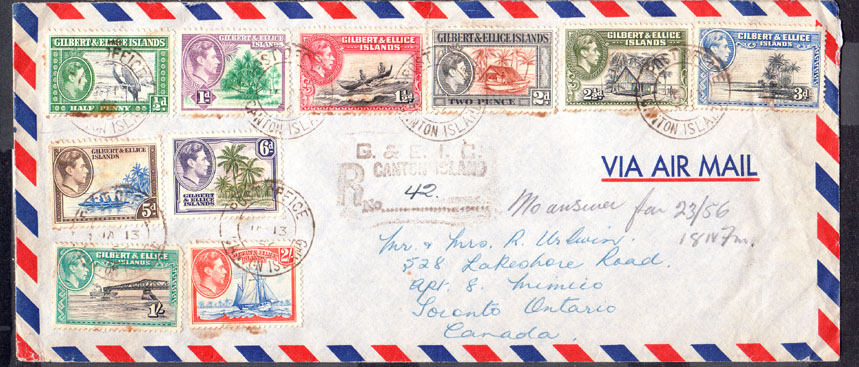 GILBERT & ELLICE ISLANDS
HALF PENNY ½d
GILBERT & ELLICE ISLANDS
1d
GILBERT & ELLICE ISLANDS
1½d
GILBERT & ELLICE ISLANDS
TWO PENCE 2d
GILBERT & ELLICE ISLANDS
2½d
GILBERT & ELLICE ISLANDS
3d
CANTON ISLAND
GILBERT & ELLICE ISLANDS
5d
6d
GILBERT & ELLICE ISLANDS
POST OFFICE
JA 13
GILBERT & ELLICE ISLANDS
1/-
GILBERT & ELLICE ISLANDS
2/-
G. & E. I. C.
CANTON ISLAND
R
No. 42.
VIA AIR MAIL
No answer for 23/56
Mr. & Mrs. R.
528 Lakeshore Road.
apt. 8. Mimico
Toronto Ontario
Canada.